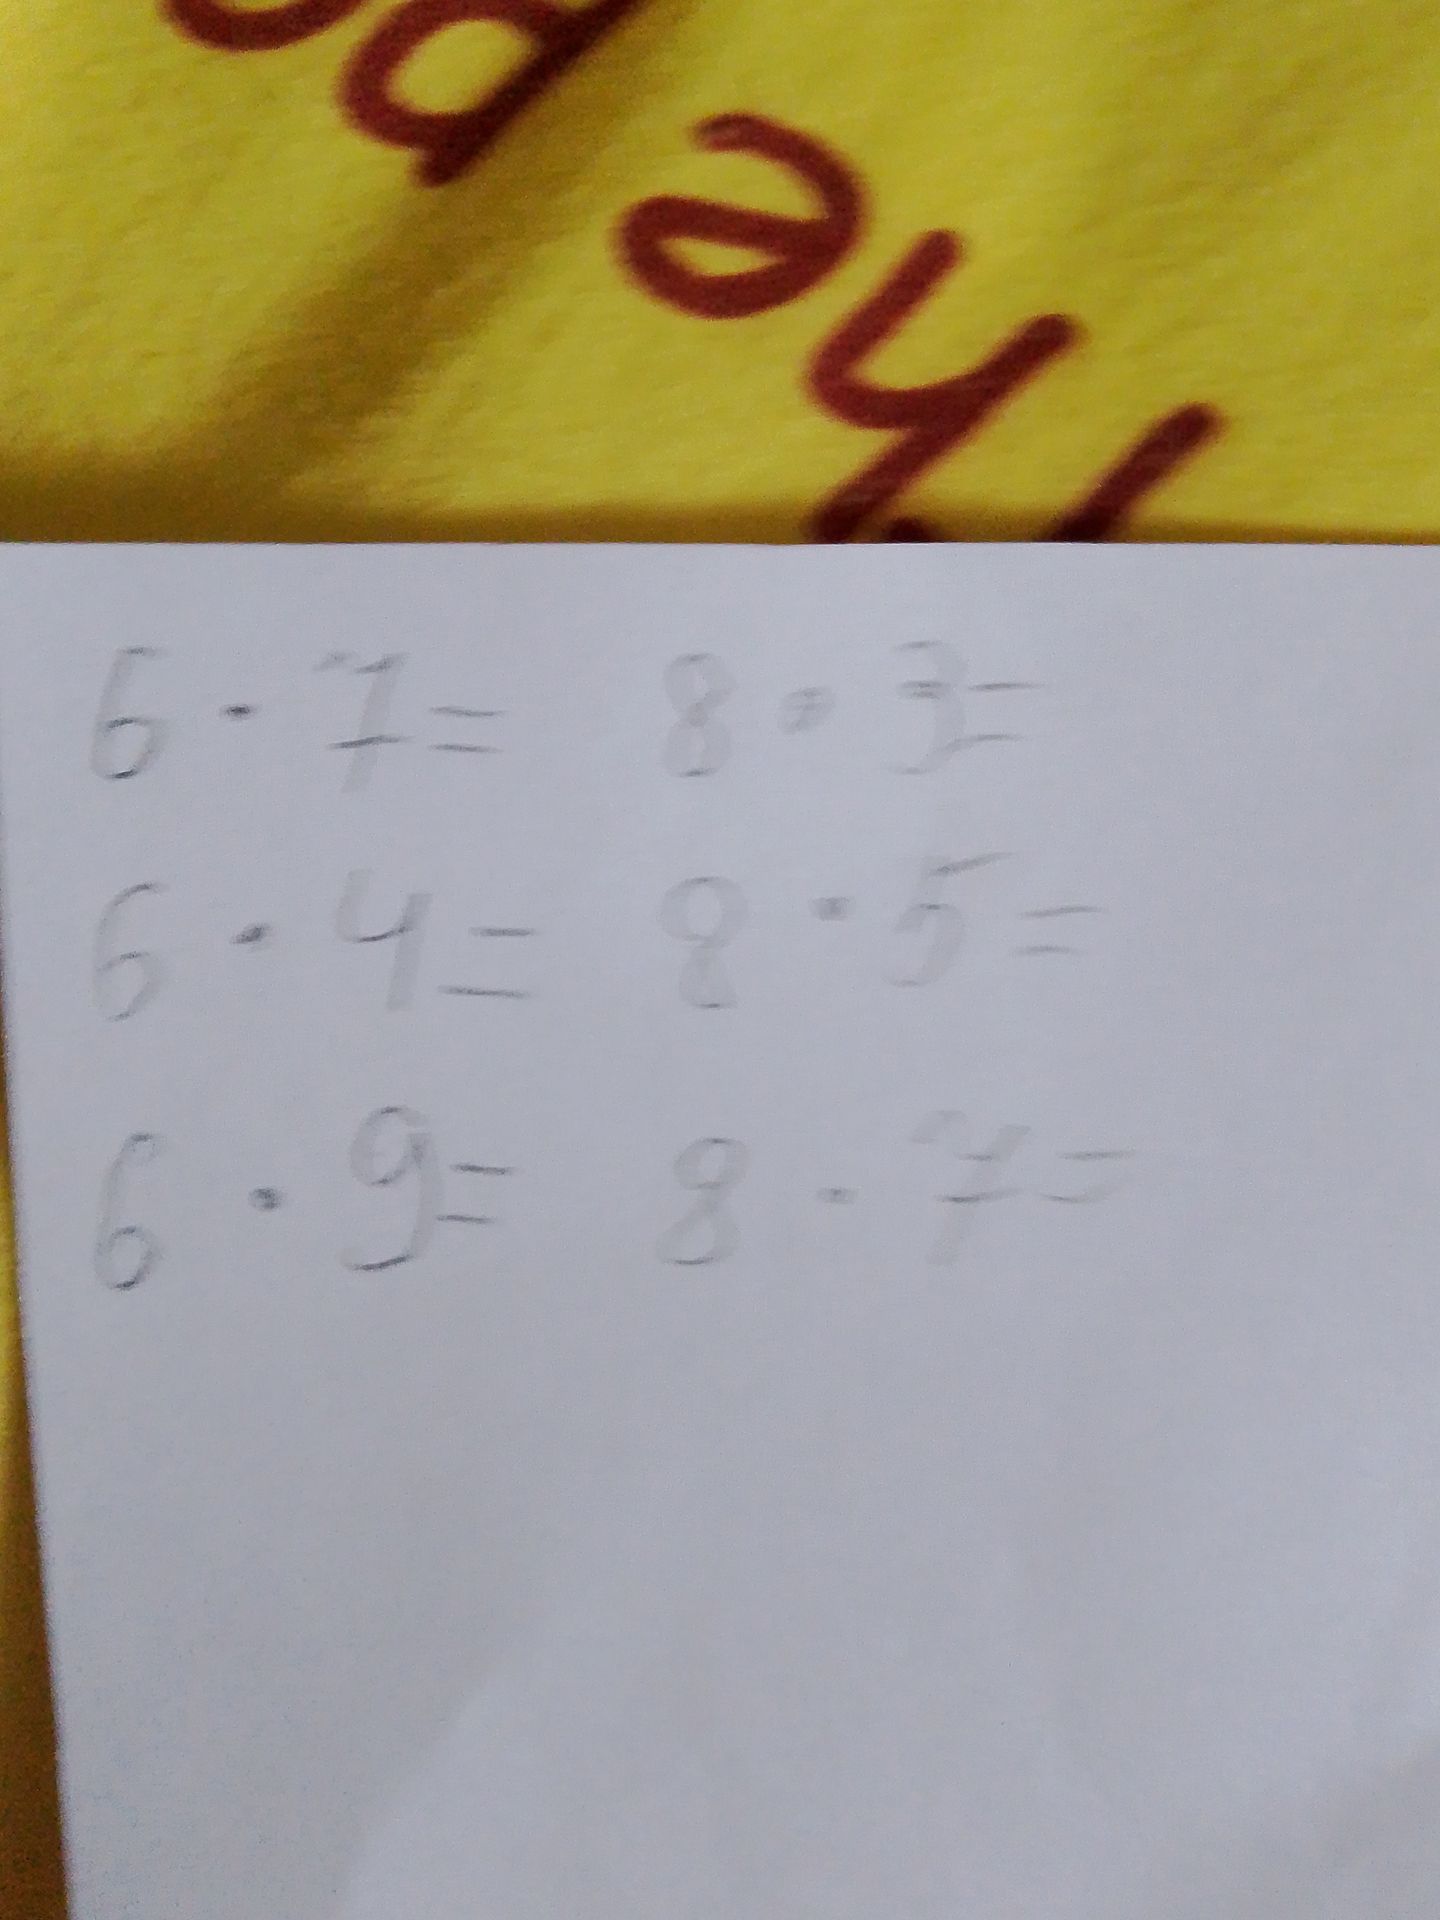 6 · 7 = 8 · 3 =
6 · 4 = 8 · 5 =
6 · 9 = 8 · 7 =